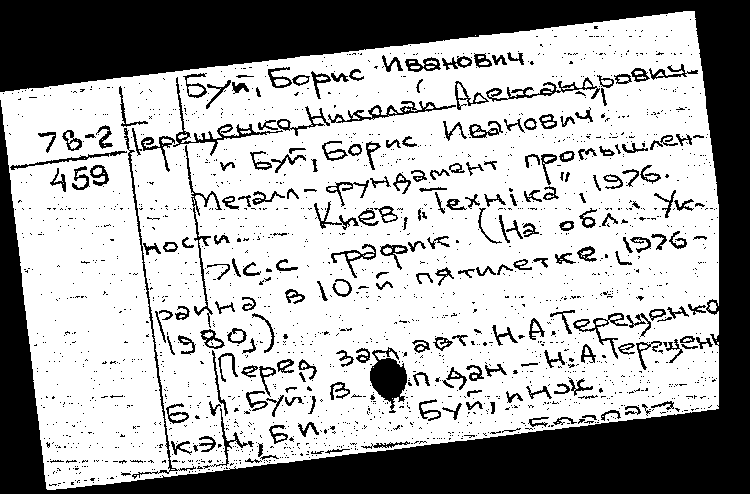 Буй, Борис Иванович.
78-2 Терещенко, Николай Александрович
459 и Буй, Борис Иванович.
Металл-фундамент промышлен-
ности. Киев, "Технiка", 1976.
7с. с график. (На обл.: Ук-
раина в 10-й пятилетке. 1976-
1980,).
Перед загл. авт.: Н.А.Терещенко
Б.И. Буй; в п.дан.-Н.А.Терещенк
к.э.н., Б.И. Буй, инж.